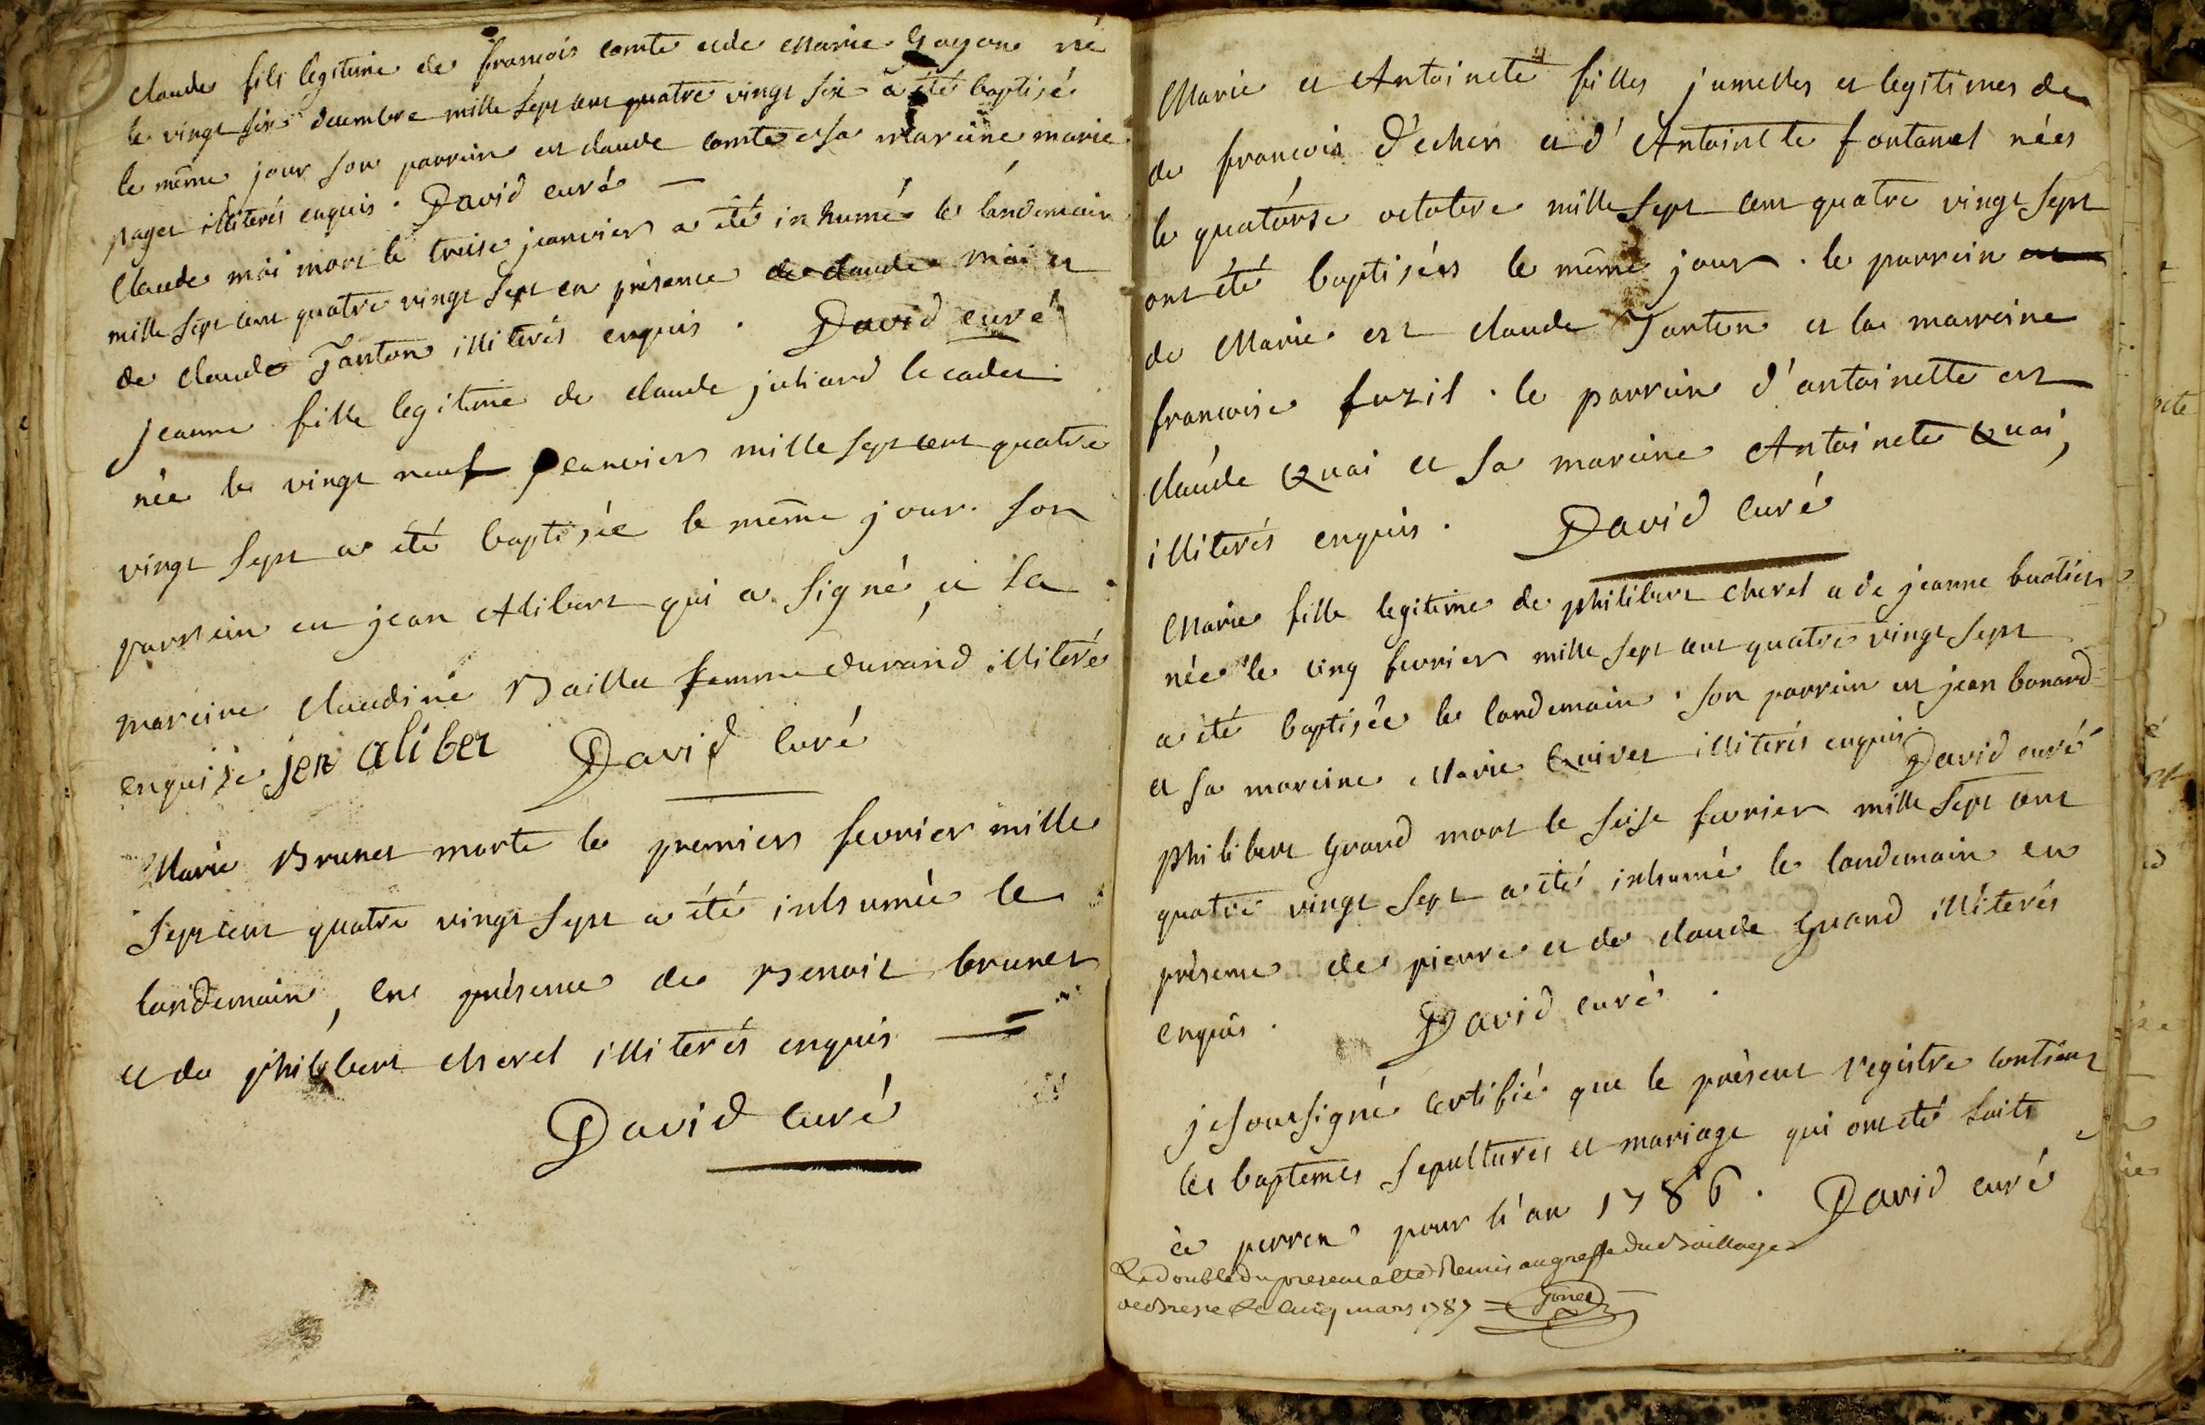 claude fils legitime de francois comte et de Marie Gayon né
le vingt six decembre mille sept cent quatre vingt six a été baptisé
le même jour son parrein est claude comte et sa mareine marie
pages illiterés enquis. David curé —
Claude moi mort le treise jeanvier a été inhumé le landemain
mille sept cent quatre vingt sept en présence de claude moi et
de claude Janton illiterés enquis. David curé
jeanne fille legitime de claude juliard le cadet
née le vingt neuf jeanvier mille sept cent quatre
vingt sept a été baptisée le même jour. son
parrein est jean Alibert qui a signé, et sa
mareine claudine Baillu femme durand illiterée
enquise jen aliber David curé
Marie Brunet morte le premier fevrier mille
sept cent quatre vingt sept a été inhumée le
landemain, en présence de Benoit brunet
et de philibert cherel illiterés enquis —
David curé
Marie et Antoinete filles jumelles et legitimes de
de francois d'echer et d'Antoinette fontanel nées
le quatorse octobre mille sept cent quatre vingt sept
ont été baptisées le même jour. le parrein
de Marie est claude Janton et la marreine
francoise fuzil. le parrein d'antoinette est
claude Quai et sa mareine Antoinete Quai,
illiterés enquis. David curé
Marie fille legitime de philibert cherel et de jeanne buatier
née le cinq fevrier mille sept cent quatre vingt sept
a été baptisée le landemain. son parrein est jean bonard
et sa mareine Marie Quivet illiterés enquis. David curé
philibert Grand mort le seise fevrier mille sept cent
quatre vingt sept a été inhumé le landemain en
présence de pierre et de claude Grand illiterés
enquis. David curé.
je soussigné certifié que le présent registre contient
les baptemes sepultures et mariage qui ont été faits
à perren pour l'an 1786. David curé
Le double du present a été Remis au greffe du Bailliage
de Bresse Le cinq mars 1787